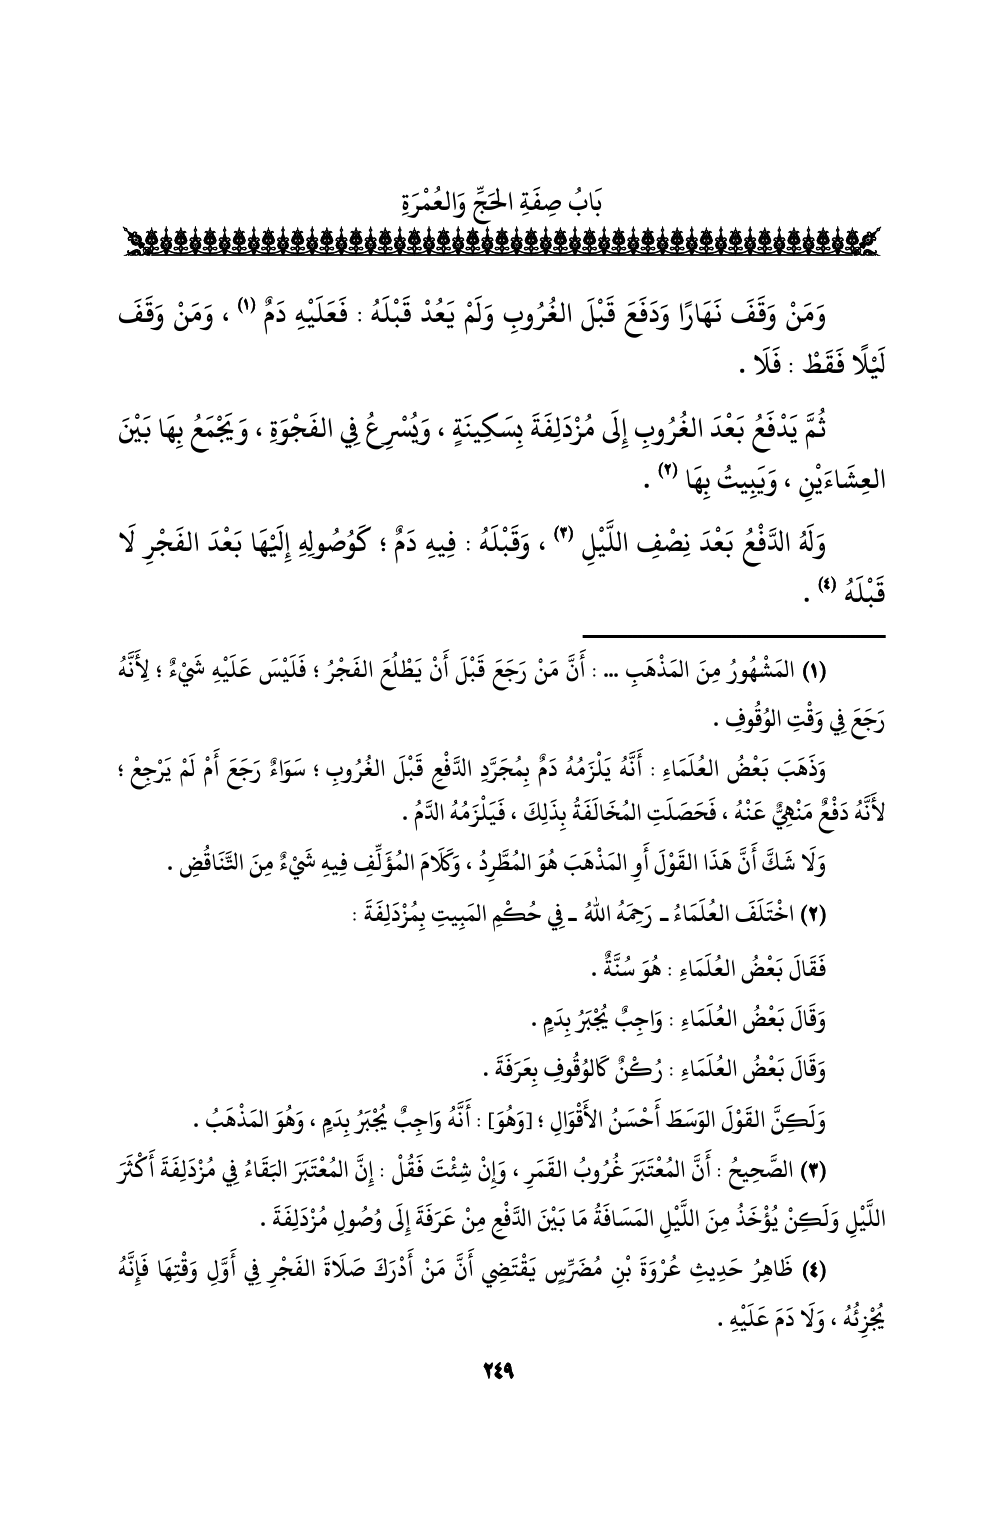 بَابُ صِفَةِ الحَجِّ وَالعُمْرَةِ
وَمَنْ وَقَفَ نَهَارًا وَدَفَعَ قَبْلَ الغُرُوبِ وَلَمْ يَعُدْ قَبْلَهُ : فَعَلَيْهِ دَمٌ (١) ، وَمَنْ وَقَفَ
لَيْلًا فَقَطْ : فَلَا .
ثُمَّ يَدْفَعُ بَعْدَ الغُرُوبِ إِلَى مُزْدَلِفَةَ بِسَكِينَةٍ ، وَيُسْرِعُ فِي الفَجْوَةِ ، وَيَجْمَعُ بِهَا بَيْنَ
العِشَاءَيْنِ ، وَيَبِيتُ بِهَا (٢) .
وَلَهُ الدَّفْعُ بَعْدَ نِصْفِ اللَّيْلِ (٣) ، وَقَبْلَهُ : فِيهِ دَمٌ ؛ كَوُصُولِهِ إِلَيْهَا بَعْدَ الفَجْرِ لَا
قَبْلَهُ (٤) .
(١) المَشْهُورُ مِنَ المَذْهَبِ ... : أَنَّ مَنْ رَجَعَ قَبْلَ أَنْ يَطْلُعَ الفَجْرُ ؛ فَلَيْسَ عَلَيْهِ شَيْءٌ ؛ لِأَنَّهُ
رَجَعَ فِي وَقْتِ الوُقُوفِ .
وَذَهَبَ بَعْضُ العُلَمَاءِ : أَنَّهُ يَلْزَمُهُ دَمٌ بِمُجَرَّدِ الدَّفْعِ قَبْلَ الغُرُوبِ ؛ سَوَاءٌ رَجَعَ أَمْ لَمْ يَرْجِعْ ؛
لأَنَّهُ دَفْعٌ مَنْهِيٌّ عَنْهُ ، فَحَصَلَتِ المُخَالَفَةُ بِذَلِكَ ، فَيَلْزَمُهُ الدَّمُ .
وَلَا شَكَّ أَنَّ هَذَا القَوْلَ أَوِ المَذْهَبَ هُوَ المُطَّرِدُ ، وَكَلَامَ المُؤَلِّفِ فِيهِ شَيْءٌ مِنَ التَّنَاقُضِ .
(٢) اخْتَلَفَ العُلَمَاءُ ـ رَحِمَهُ اللهُ ـ فِي حُكْمِ المَبِيتِ بِمُزْدَلِفَةَ :
فَقَالَ بَعْضُ العُلَمَاءِ : هُوَ سُنَّةٌ .
وَقَالَ بَعْضُ العُلَمَاءِ : وَاجِبٌ يُجْبَرُ بِدَمٍ .
وَقَالَ بَعْضُ العُلَمَاءِ : رُكْنٌ كَالوُقُوفِ بِعَرَفَةَ .
وَلَكِنَّ القَوْلَ الوَسَطَ أَحْسَنُ الأَقْوَالِ ؛ [وَهُوَ] : أَنَّهُ وَاجِبٌ يُجْبَرُ بِدَمٍ ، وَهُوَ المَذْهَبُ .
(٣) الصَّحِيحُ : أَنَّ المُعْتَبَرَ غُرُوبُ القَمَرِ ، وَإِنْ شِئْتَ فَقُلْ : إِنَّ المُعْتَبَرَ البَقَاءُ فِي مُزْدَلِفَةَ أَكْثَرَ
اللَّيْلِ وَلَكِنْ يُؤْخَذُ مِنَ اللَّيْلِ المَسَافَةُ مَا بَيْنَ الدَّفْعِ مِنْ عَرَفَةَ إِلَى وُصُولِ مُزْدَلِفَةَ .
(٤) ظَاهِرُ حَدِيثِ عُرْوَةَ بْنِ مُضَرِّسٍ يَقْتَضِي أَنَّ مَنْ أَدْرَكَ صَلَاةَ الفَجْرِ فِي أَوَّلِ وَقْتِهَا فَإِنَّهُ
يُجْزِئُهُ ، وَلَا دَمَ عَلَيْهِ .
٢٤٩